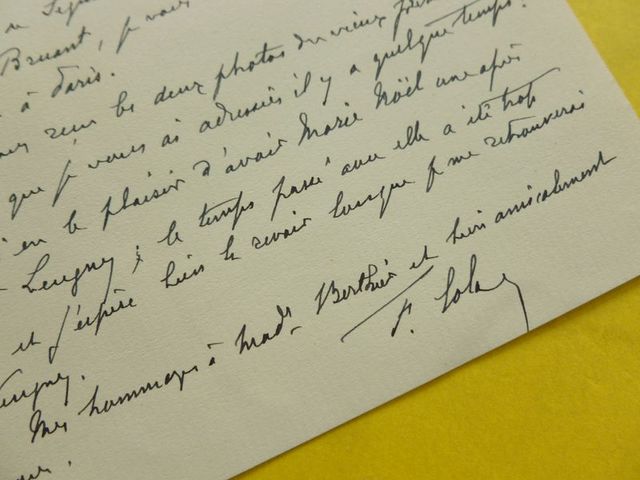 Bruant, je vous
à Paris.
reçu les deux photos du vieux
que je vous ai adressées il y a quelque temps.
eu le plaisir d'avoir Marie Noël une après
Leugny ; le temps passé avec elle a été trop
et j'espère bien la revoir lorsque je me retrouverai
Leugny.
Mes hommages à Made Berthier et bien amicalement